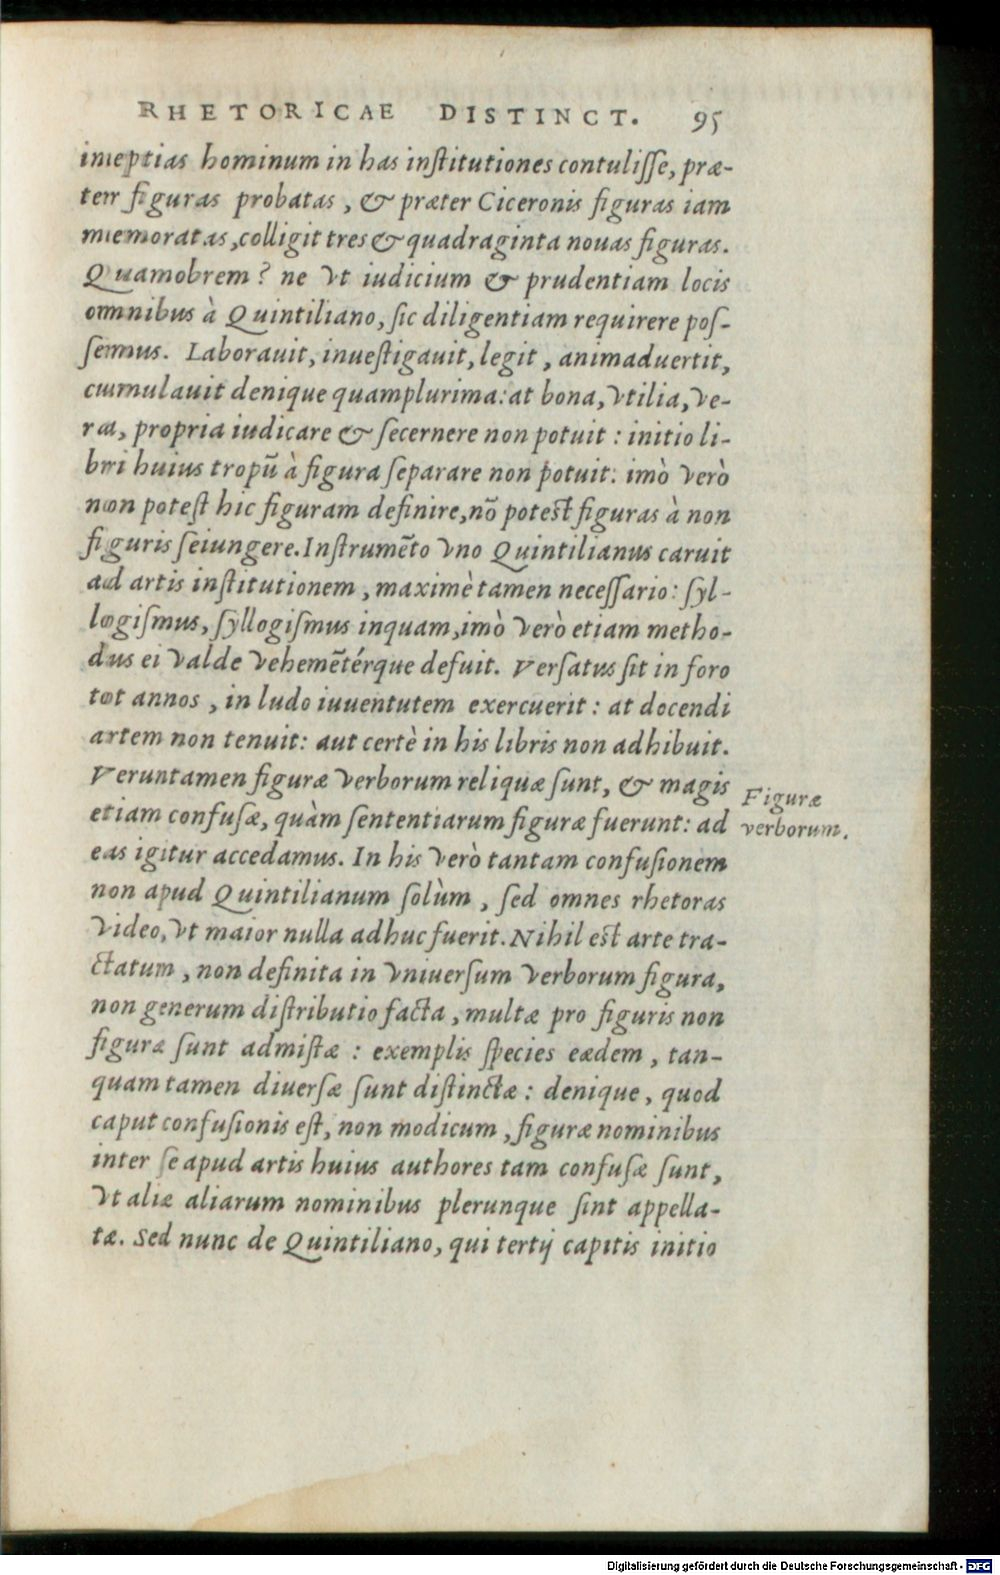 RHETORICAE DISTINCT. 95
ineptias hominum in has inſtitutiones contuliſſe, præ-
ter figuras probatas, & præter Ciceronis figuras iam
memoratas, colligit tres & quadraginta nouas figuras.
Quamobrem? ne vt iudicium & prudentiam locis
omnibus à Quintiliano, ſic diligentiam requirere poſ-
ſemus. Laborauit, inueſtigauit, legit, animaduertit,
cumulauit denique quamplurima: at bona, vtilia, ve-
ra, propria iudicare & ſecernere non potuit: initio li-
bri huius tropũ à figura ſeparare non potuit: imò verò
non poteſt hic figuram definire, nõ poteſt figuras à non
figuris ſeiungere. Inſtrumẽto vno Quintilianus caruit
ad artis inſtitutionem, maximè tamen neceſſario: ſyl-
logiſmus, ſyllogiſmus inquam, imò verò etiam metho-
dus ei valde vehemẽtérque defuit. Verſatus ſit in foro
tot annos, in ludo iuuentutem exercuerit: at docendi
artem non tenuit: aut certè in his libris non adhibuit.
Veruntamen figuræ verborum reliquæ ſunt, & magis
etiam confuſæ, quàm ſententiarum figuræ fuerunt: ad
eas igitur accedamus. In his verò tantam confuſionem
non apud Quintilianum ſolùm, ſed omnes rhetoras
video, vt maior nulla adhuc fuerit. Nihil eſt arte tra-
ctatum, non definita in vniuerſum verborum figura,
non generum diſtributio facta, multæ pro figuris non
figuræ ſunt admiſtæ: exemplis ſpecies eædem, tan-
quam tamen diuerſæ ſunt diſtinctæ: denique, quod
caput confuſionis eſt, non modicum, figuræ nominibus
inter ſe apud artis huius authores tam confuſæ ſunt,
vt aliæ aliarum nominibus plerunque ſint appella-
tæ. Sed nunc de Quintiliano, qui tertij capitis initio
Figuræ
verborum.
Digitalisierung gefördert durch die Deutsche Forschungsgemeinschaft - DFG